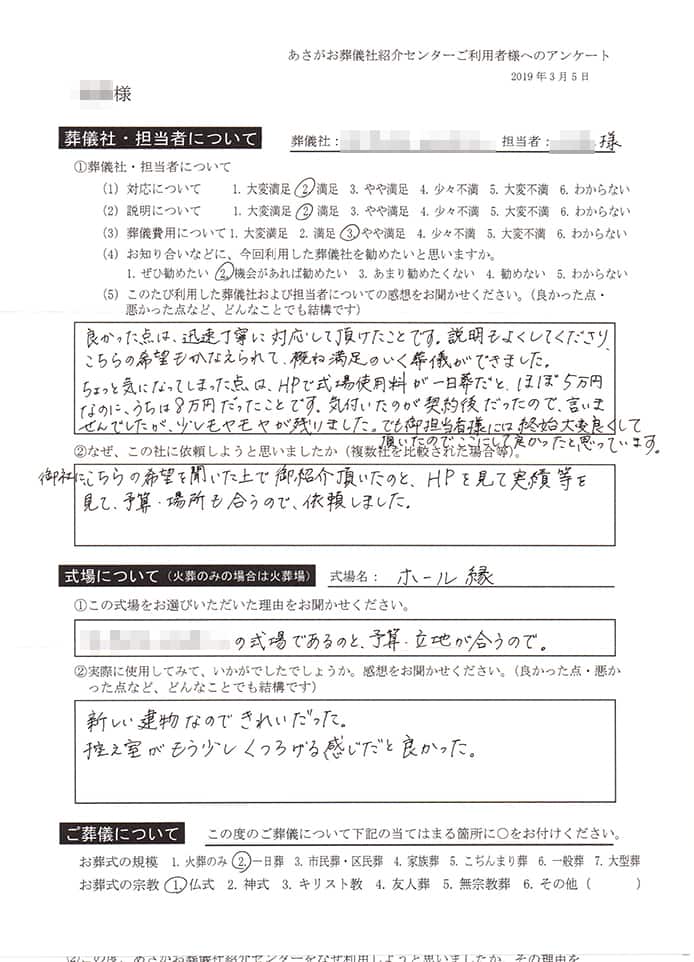 あさがお葬儀社紹介センターご利用者様へのアンケート
2019年3月5日
様
葬儀社・担当者について 葬儀社： 担当者： 様
①葬儀社・担当者について
(1) 対応について 1. 大変満足 2. 満足 3. やや満足 4. 少々不満 5. 大変不満 6. わからない
(2) 説明について 1. 大変満足 2. 満足 3. やや満足 4. 少々不満 5. 大変不満 6. わからない
(3) 葬儀費用について 1. 大変満足 2. 満足 3. やや満足 4. 少々不満 5. 大変不満 6. わからない
(4) お知り合いなどに、今回利用した葬儀社を勧めたいと思いますか。
1. ぜひ勧めたい 2. 機会があれば勧めたい 3. あまり勧めたくない 4. 勧めない 5. わからない
(5) このたび利用した葬儀社および担当者についての感想をお聞かせください。（良かった点・
悪かった点など、どんなことでも結構です）
良かった点は、迅速丁寧に対応して頂けたことです。説明もよくしてくださり、
こちらの希望もかなえられて、概ね満足のいく葬儀ができました。
ちょっと気になってしまった点は、HPで式場使用料が一日葬だと、ほぼ5万円
なのに、うちは8万円だったことです。気付いたのが契約後だったので、言いま
せんでしたが、少しモヤモヤが残りました。でも御担当者様には終始大変良くして
頂いたのでここにして良かったと思っています。
②なぜ、この社に依頼しようと思いましたか（複数社を比較された場合等）。
御社にこちらの希望を聞いた上で御紹介頂いたのと、HPを見て実績等を
見て、予算・場所も合うので、依頼しました。
式場について（火葬のみの場合は火葬場） 式場名： ホール縁
①この式場をお選びいただいた理由をお聞かせください。
の式場であるのと、予算・立地が合うので。
②実際に使用してみて、いかがでしたでしょうか。感想をお聞かせください。（良かった点・悪か
った点など、どんなことでも結構です）
新しい建物なのできれいだった。
控え室がもう少しくつろげる感じだと良かった。
ご葬儀について この度のご葬儀について下記の当てはまる箇所に〇をお付けください。
お葬式の規模 1. 火葬のみ 2. 一日葬 3. 市民葬・区民葬 4. 家族葬 5. こぢんまり葬 6. 一般葬 7. 大型葬
お葬式の宗教 1. 仏式 2. 神式 3. キリスト教 4. 友人葬 5. 無宗教葬 6. その他（ ）
②この度、あさがお葬儀社紹介センターをなぜ利用しようと思いましたか、その理由を